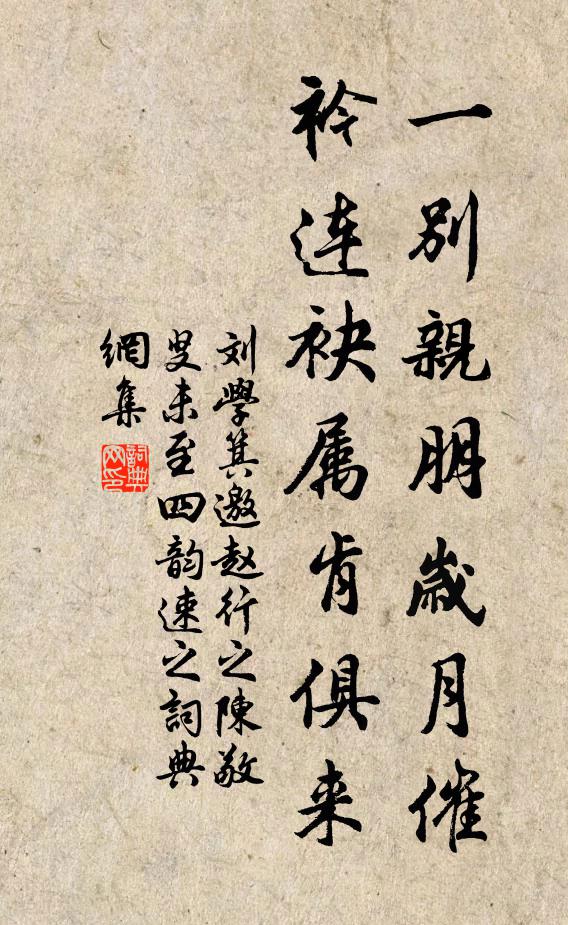 一别親朋歲月催
衿連袂属肯俱来
刘學箕邀赵行之陳敬
叟未至四韵速之詞典
網集
詞典網印